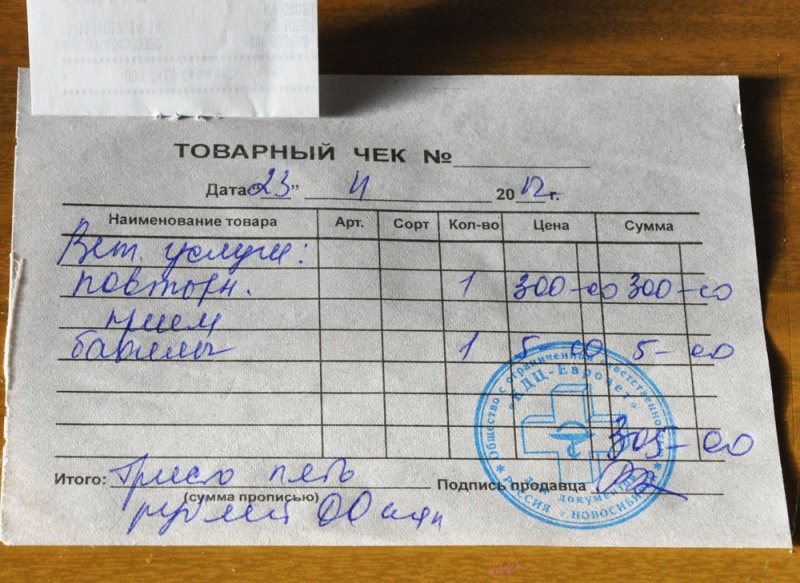 ТОВАРНЫЙ ЧЕК №
Дата «23» 11 2012 г.
Наименование товара Арт. Сорт Кол-во Цена Сумма
Вет. услуги:
повторн. 1 300-00 300-00
прием
бахилы 1 5-00 5-00
305-00
Итого: Триста пять
Подпись продавца
(сумма прописью)
рублей 00 коп
Общество с ограниченной ответственностью
«КДЦ-Евровет»
для документов
РОССИЯ г. НОВОСИБИРСК